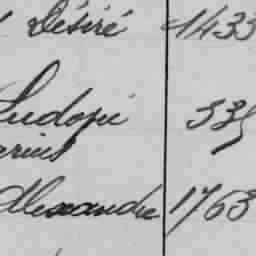 Désiré 1433
Ludovic 335
Alexandre 1763